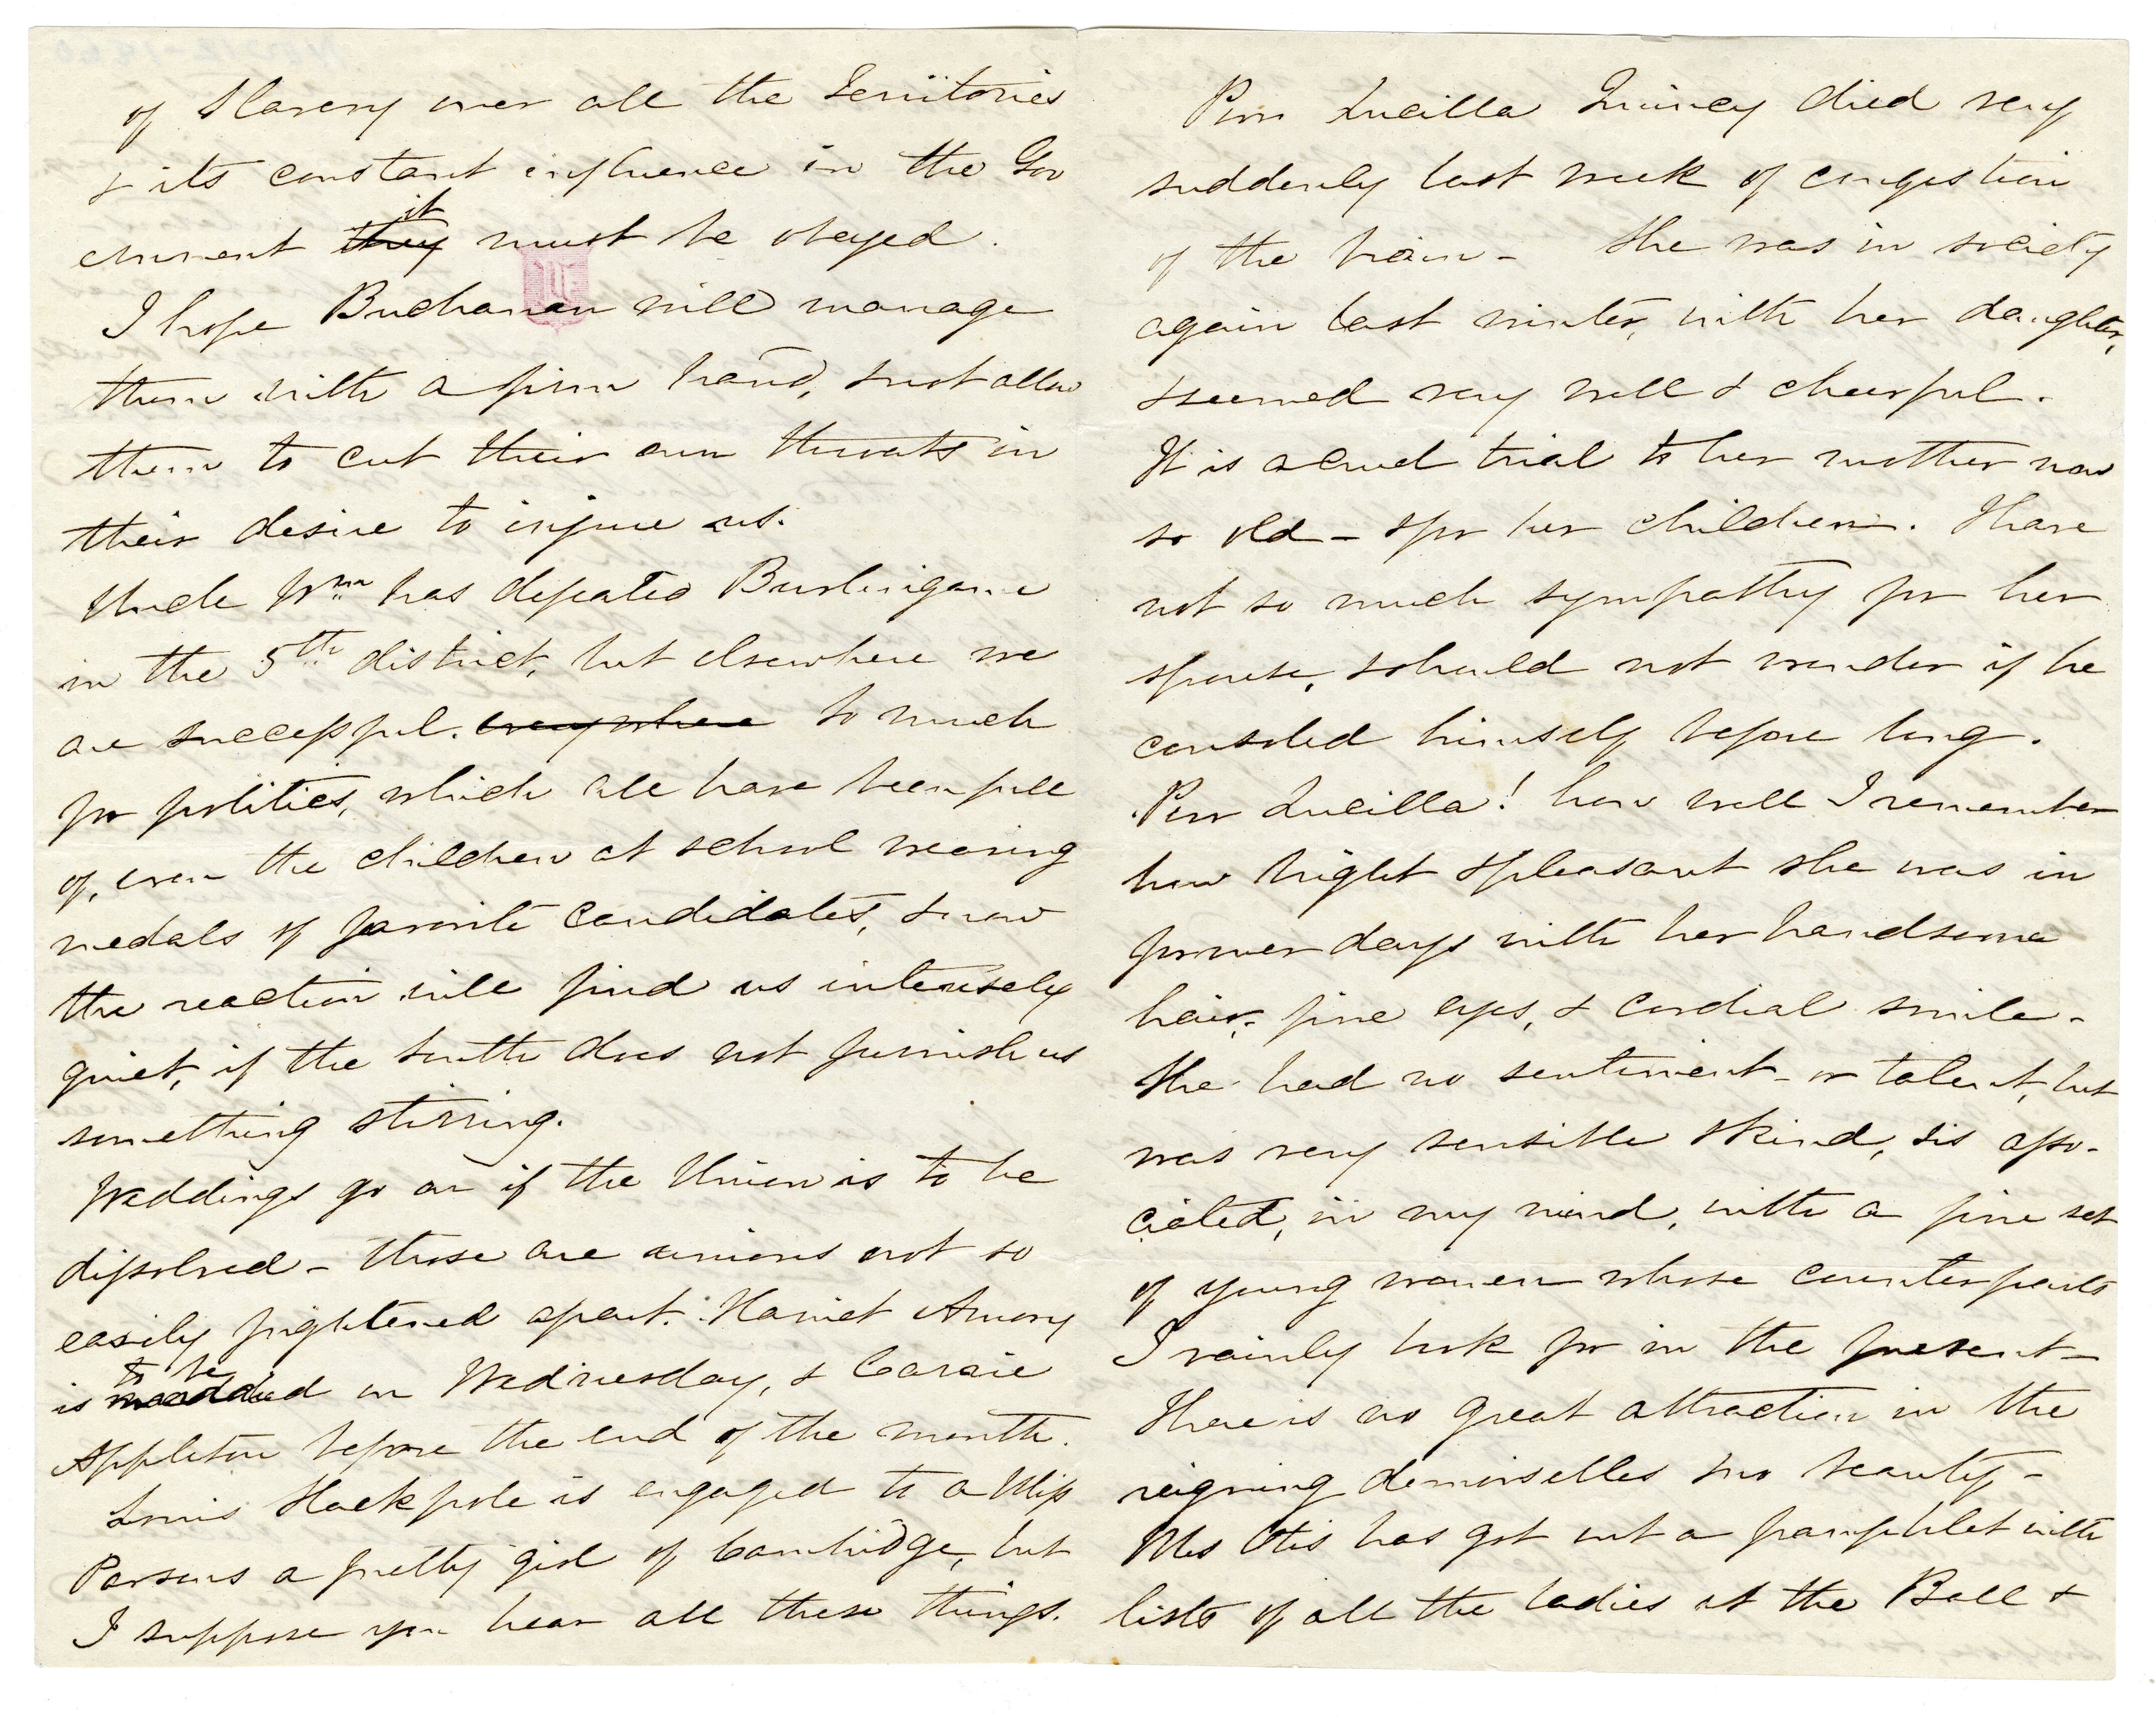 of Slavery over all the Territories
& its constant influence in the Gov
ernment they it must be obeyed.
I hope Buchanan will manage
them with a firm hand, & not allow
them to cut their own throats in
their desire to injure us.
Uncle Wm has defeated Burlingame
in the 5th district, but elsewhere we
are successful. everywhere So much
for politics, which all have been full
of, even the children at school wearing
medals of favorite candidates, & now
the reaction will find us intensely
quiet, if the South does not furnish us
something stirring.
Weddings go on if the Union is to be
dissolved – these are unions not so
easily frightened apart. Harriet Amory
to be
is wedded on Wednesday, & Carrie
Appleton before the end of the month.
Louis Stackpole is engaged to a Miss
Parsons a pretty girl of Cambridge, but
I suppose you hear all these things.
Poor Lucilla Quincy died very
suddenly last week of congestion
of the brain – She was in society
again last winter, with her daughter,
& seemed very well & cheerful.
It is a cruel trial to her mother now
so old – & for her children. I have
not so much sympathy for her
spouse, & should not wonder if he
consoled himself before long.
Poor Lucilla! how well I remember
how bright & pleasant she was in
former days with her handsome
hair, fine eyes, & cordial smile –
She had no sentiment – or talent, but
was very sensible & kind, & is asso-
ciated, in my mind, with a fine set
of young women whose counterparts
I vainly look for in the present –
There is no great attraction in the
reigning demoiselles & no beauty –
Mrs Otis has got out a pamphlet with
lists of all the ladies at the Ball &